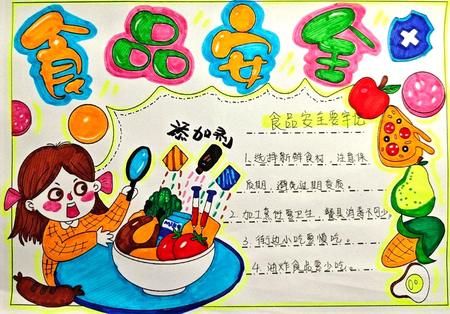 食品安全
添加剂
食品安全要牢记
1.选择新鲜食材，注意保
质期，避免过期变质。
2.加工烹饪要卫生，餐具消毒不可少。
3.街边小吃要慎吃。
4.油炸食品要少吃。